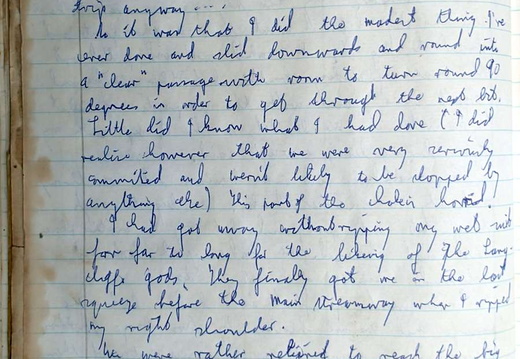 trip anyway....
So it was that I did the madest thing I've
ever done and slid downwards and round into
a "clear" passage with room to turn round 90
degrees in order to get through the next bit.
Little did I know what I had done (I did
realise however that we were very seriously
commited and weren't likely to be stopped by
anything else) This part of the choke's horrid.
I had got away without ripping my wet suit
for far to long for the liking of the Lang-
cliffe gods. They finally got me in the last
squeeze before the main streamway when I ripped
my right shoulder.
We were rather relieved to reach the big